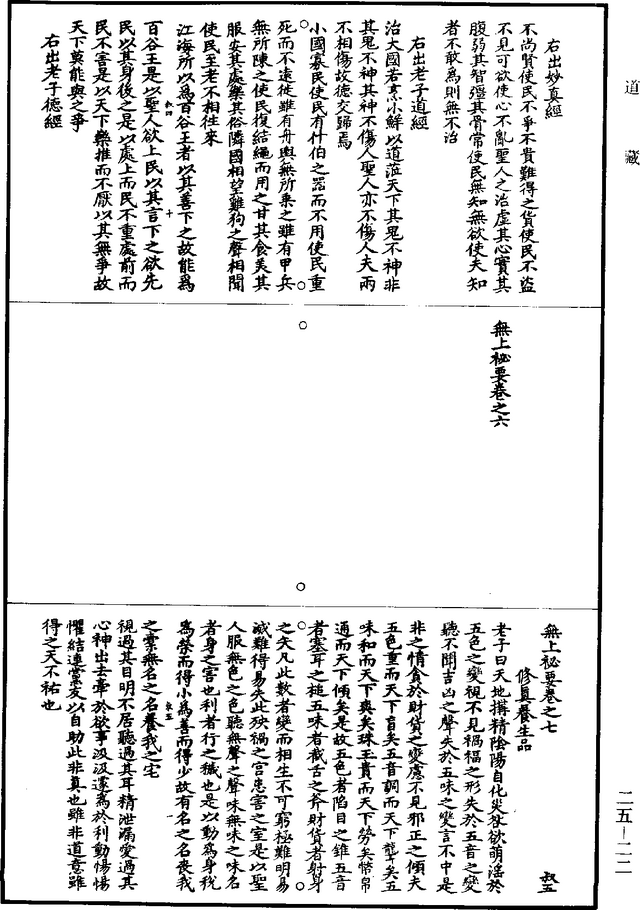 道藏
右出妙真經
不尚賢使民不爭不貴難得之貨使民不盜
不見可欲使心不亂聖人之治虛其心實其
腹弱其智彊其骨常使民無知無欲使夫知
者不敢為則無不治
右出老子道經
治大國若烹小鮮以道蒞天下其鬼不神非
其鬼不神其神不傷人聖人亦不傷人夫兩
不相傷故德交歸焉
小國寡民使民有什伯之器而不用使民重
死而不遠徙雖有舟輿無所乘之雖有甲兵
無所陳之使民復結繩而用之甘其食美其
服安其處樂其俗隣國相望雞狗之聲相聞
使民至老不相往來
江海所以為百谷王者以其善下之故能為
百谷王是以聖人欲上民以其言下之欲先
民以其身後之是以處上而民不重處前而
民不害是以天下樂推而不厭以其無爭故
天下莫能與之爭
右出老子德經
叔四
十
無上祕要卷之六
無上祕要卷之七
叔五
修真養生品
老子曰天地搆精陰陽自化災咎欲萌淫於
五色之變視不見禍福之形失於五音之變
聽不聞吉凶之聲失於五味之變言不中是
非之情貪於財貨之變慮不見邪正之傾夫
五色重而天下盲矣五音調而天下聾矣五
味和而天下爽矣珠玉貴而天下勞矣幣帛
通而天下傾矣是故五色者陷目之錐五音
者塞耳之槌五味者截舌之斧財貨者射身
之矢凡此數者變而相生不可窮極難明易
滅難得易失此殃禍之宮患害之室是以聖
人服無色之色聽無聲之聲味無味之味名
者身之害也利者行之穢也是以動為身稅
為榮而得小為善而得少故有名之名喪我
之橐無名之名養我之宅
叔五
一
視過其目明不居聽過其耳精泄漏愛過其
心神出去牽於欲事汲汲遽為於利動惕惕
懼結連黨友以自助此非真也雖非道意雖
得之天不祐也
二五—二二